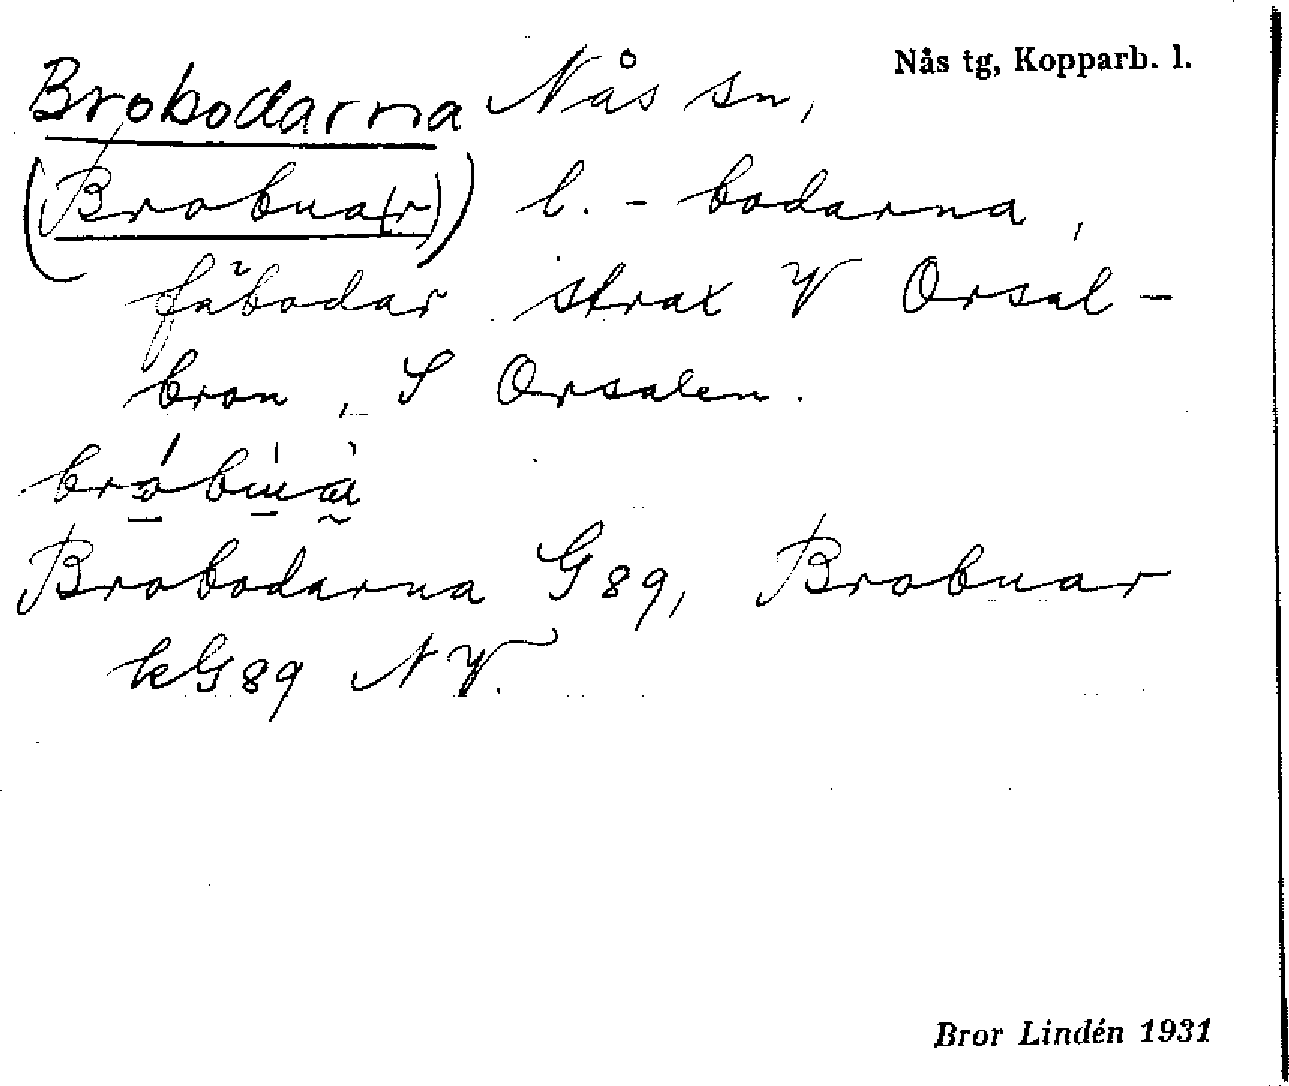 Nås tg, Kopparb. l.
Brobodarna Nås sn,
(Brobua(r)) l. - bodarna,
fäbodar strax V Orsal-
bron, S Orsalen.
Brobodarna G89, Brobuar
kG89 NV.
Bror Lindén 1931